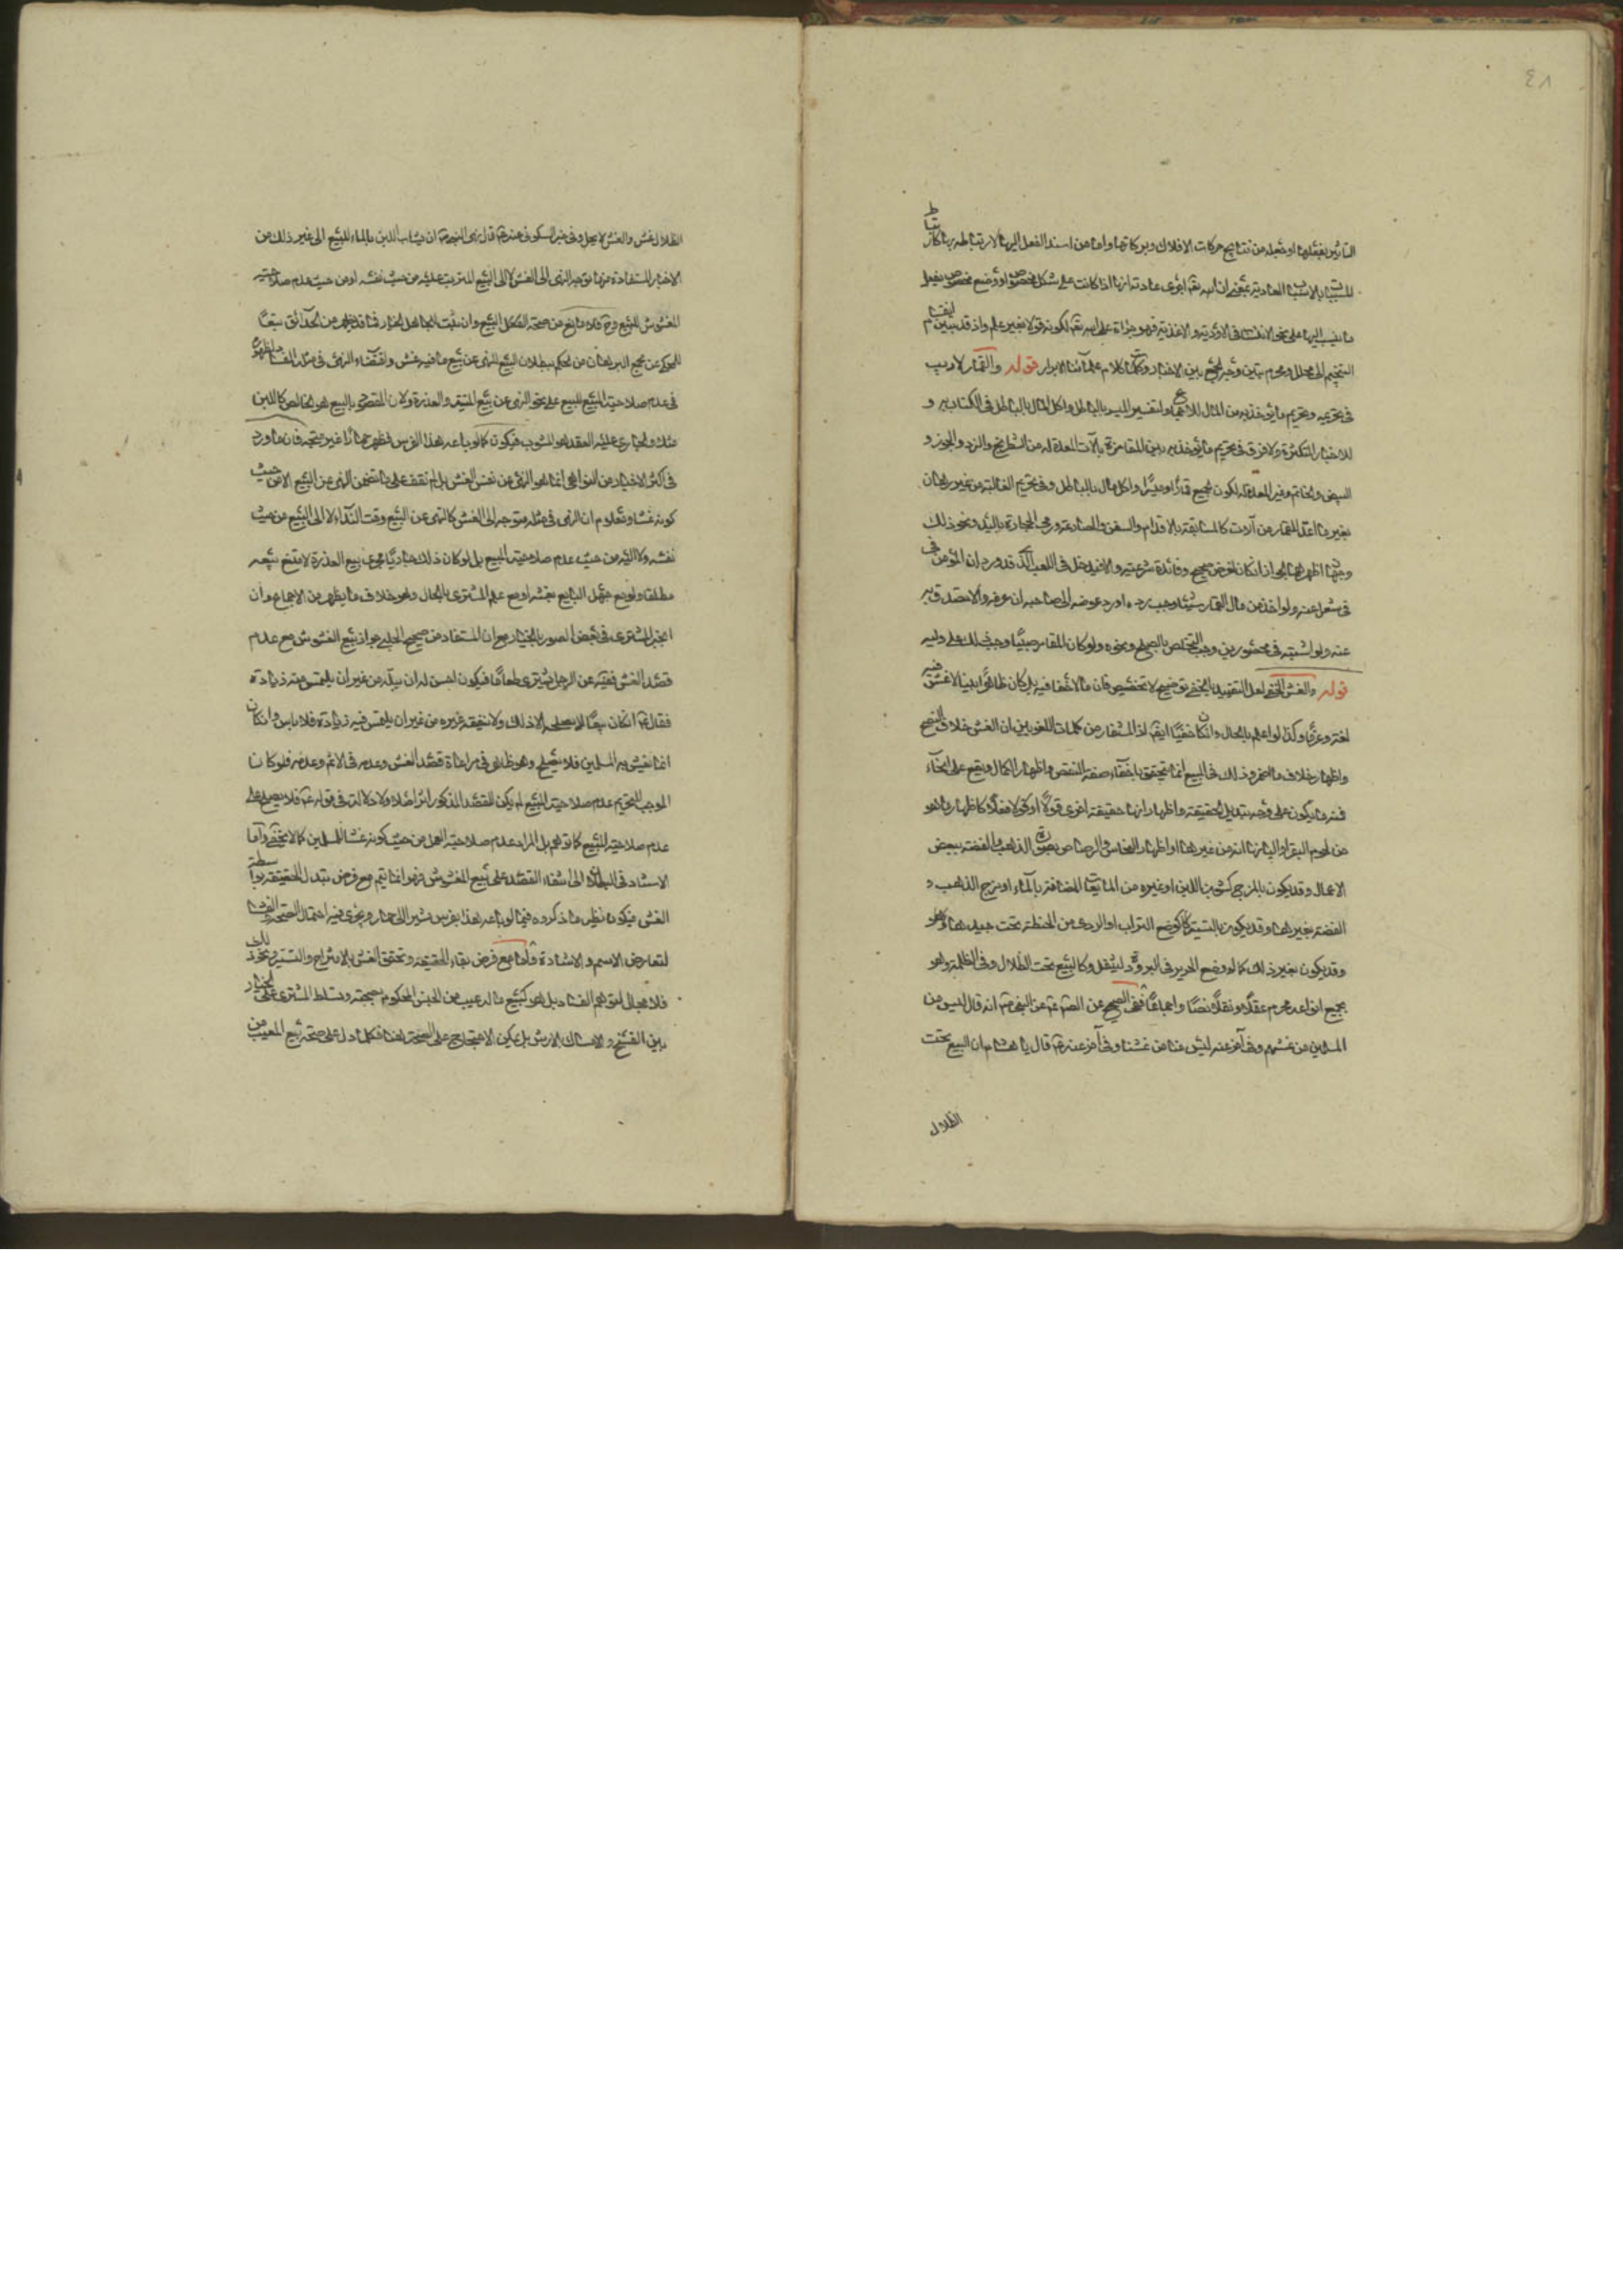 ٤٨
التأثير بفعلها او جعله من نتايج حركات الافلاك وبركاتها واما من اسند الفعل اليها لارتباطه بها كارتباط
المسببات بالاسباب العادية بمعنى ان الله تعم اجرى عادته انها اذا كانت على شكل مخصوص او وضع مخصوص يفعل
ما ينسب اليها على نحو الانتساب في الادوية والاغذية فهو جرأة على الله تعم لكونه قولا بغير علم واذ قد تبين انقسام
التنجيم الى محلل ومحرم تبين وجه الجمع بين الاخبار وكلمات كلام علمائنا الابرار قوله والقمار لا ريب
في تحريمه وتحريم ما يؤخذ به من المال للاجماع ولتفسير الميسر بالباطل واكل المال بالباطل في الكتاب به و
للاخبار المتكثرة ولا فرق في تحريم ما يؤخذ به بين المقامرة بالآت المعدة له من الشطرنج والنرد والجوز و
البيض والخاتم وغير المعدة له لكون الجميع قمارا وميسرا واكل مال بالباطل وفي تحريم المغالبة من غير رهان
بغير ما اعد للقمار من آلات كالمسابقة بالاقدام والسفن والمصارعة ورمي الحجارة باليد ونحو ذلك
وجهان اظهرهما الجواز ان كان لغرض صحيح وفائدة شرعية والا فيدخل في اللعب الذي قد ورد ان المؤمن
في شغل عنه ولو اخذ من مال القمار شيئا وجب رده او رد عوضه الى صاحبه ان عرفه والا تصدق به
عنه ولو اشتبه في محصورين وجب التخلص بالصلح ونحوه ولو كان المقامر صبيا وجب ذلك على وليه
قوله والغش الخفي لعل التقييد بالخفي توضيح لا تخصيص فان ما لا خفا فيه بل كان ظاهرا بينا لا غش فيه
لغة وعرفا وكذا لو اعلم بالحال وان كان خفيا ايضا اذ المستفاد من كلمات اللغويين ان الغش خلاف النصح
واظهار خلاف ما اضمر وذلك في البيع انما يتحقق باخفاء صفة النقص واظهار الكمال ويقع على انحاء
فمنه ما يكون على وجه تبديل الحقيقة واظهار انها حقيقة اخرى قولا او فعلا كاظهار ما هو
من لحوم البقر او اليانها انه من غيرها او اظهار النحاس والرصاص بصورة الذهب والفضة ببعض
الاعمال وقد يكون بالمزج كشوب اللبن او غيره من المايعات المضافة بالماء او مزج الذهب و
الفضة بغيرها وقد يكون بالتستر كوضع التراب او الردى من الحنطة تحت جيدها
وقد يكون بغير ذلك كما لو وضع الحرير في البرودة ليثقل وكالبيع تحت الظلال وفي الظلمة وهو
بجميع انواعه محرم عقلا ونقلا نصا واجماعا ففي الصحيح عن الصادق ع عن النبي ص انه قال ليس من
المسلمين من غشهم وفي آخر عنه ليس منا من غشنا وفي آخر عنه ع قال يا هشام ان البيع تحت
الظلال
الظلال غش والغش لا يحل وفي خبر السكوني عنه ع قال نهى النبي ص ان يشاب اللبن بالماء للبيع الى غير ذلك من
الاخبار المستفادة منها توجه النهى الى الغش لا الى البيع المترتب عليه من حيث نفسه او من حيث عدم صلاحية
المغشوش للبيع وح فلا مانع من صحة اصل البيع وان ثبت الجاهل الخيار فما قد يظهر من الحدائق تبعا
للمحكى عن مجمع البرهان من الحكم ببطلان البيع للنهى عن بيع ما فيه غش واقتضاء النهى في مثله الفساد لظهوره
في عدم صلاحية المبيع للبيع على نحو النهى عن بيع الميتة والعذرة ولان المقصود بالبيع هو الخالص كاللبن
مثلا والجارى عليه العقد هو المشوب فيكون كما لو باعه هذا الفرس فظهر حمارا غير متجه فان ما ورد
في اكثر الاخبار من النواهي انما هو النهى عن نفس الغش بل لم نقف على ما تضمن النهى عن البيع الا من حيث
كونه غشا ومعلوم ان النهى في مثله متوجه الى الغش كالنهى عن البيع وقت النداء لا الى البيع من حيث
نفسه ولا اليه من حيث عدم صلاحية المبيع بل لو كان ذلك جاريا مجرى بيع العذرة لامتنع بيعه
مطلقا ولو مع جهل البايع بغشه او مع علم المشترى بالحال وهو خلاف ما يظهر من الاجماع وان
انجبر المشترى في بعض الصور بالخيار مع ان المستفاد من صحيح الحلبى جواز بيع المغشوش مع عدم
قصد الغش ففيه عن الرجل يشترى طعاما فيكون احسن له ان يبله من غير ان يلتمس منه زيادة
فقال ع ان كان بيعا لا يصلحه الا ذلك ولا ينفقه غيره من غير ان يلتمس فيه زيادة فلا باس وان كان
انما يغش به المسلمين فلا يصلح وهو ظاهر في مراعاة قصد الغش وعدمه في الاثم وعدمه فلو كان
الموجب للتحريم عدم صلاحية المبيع لم يكن للقصد المذكور اثر اصلا ولا دلالة في قوله ع فلا يصلح على
عدم صلاحية المبيع كما توهم بل المراد عدم صلاحية العمل من حيث كونه غشا للمسلمين كما لا يخفى واما
الاستناد في البطلان الى انتفاء القصد على بيع المغشوش فهو انما يتم مع فرض تبدل الحقيقة بواسطة
الغش فيكون نظير ما ذكروه فيما لو باعه هذا بفرس مشيرا الى حمار ويجرى فيه احتمال الصحة والفساد
لتعارض الاسم والاشارة واما مع فرض بقاء الحقيقة وتحقق الغش بالامتزاج والتستر ونحو ذلك
فلا مجال لتوهم الفساد بل هو كبيع ما له عيب من الجنس المحكوم بصحته وتسلط المشترى على الخيار
بين الفسخ والامساك بالارش بل يمكن الاحتجاج على الصحة هنا بكلما دل على صحة بيع المعيب من